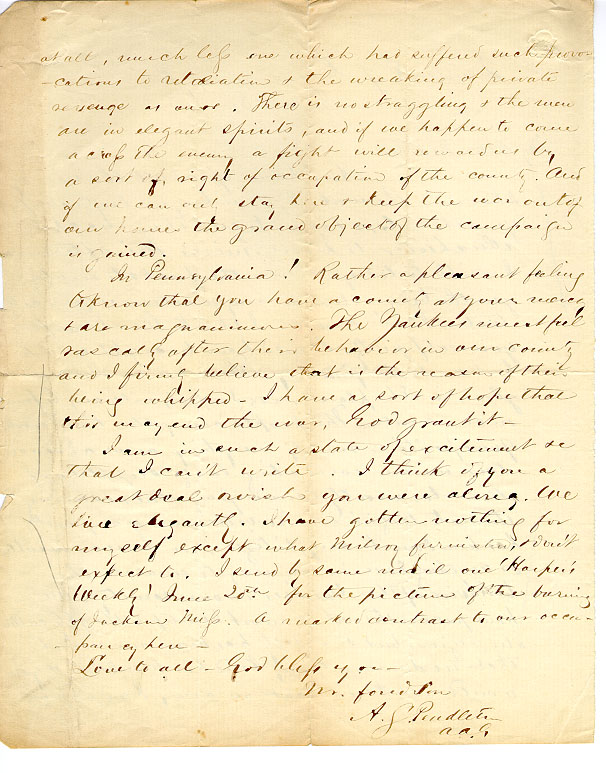 at all, much less one which had suffered such provo-
-cations to retaliation & the wreaking of private
revenge as ours. There is no straggling & the men
are in elegant spirits, and if we happen to come
across the enemy a fight will reward us by
a sort of right of occupation of the county. And
if we can only stay here & keep the war out of
our homes the grand object of the campaign
is gained.
In Pennsylvania! Rather a pleasant feeling
to know that you have a country at your mercy
& are magnanimous. The Yankees must feel
rascally after their behavior in our country
and I firmly believe that is the reason of their
being whipped - I have a sort of hope that
this may end the war, God grant it -
I am in such a state of excitement &c
that I can't write. I think of you a
great deal & wish you were along. We
live elegantly. I have gotten nothing for
myself except what Milroy furnished, & don't
expect to. I send by same mail one "Harper's
Weekly" June 20th for the picture of the burning
of Jackson Miss. A marked contrast to our occu-
-pancy here -
Love to all - God bless you -
Yr. fond Son
A. S. Pendleton
A.A.G